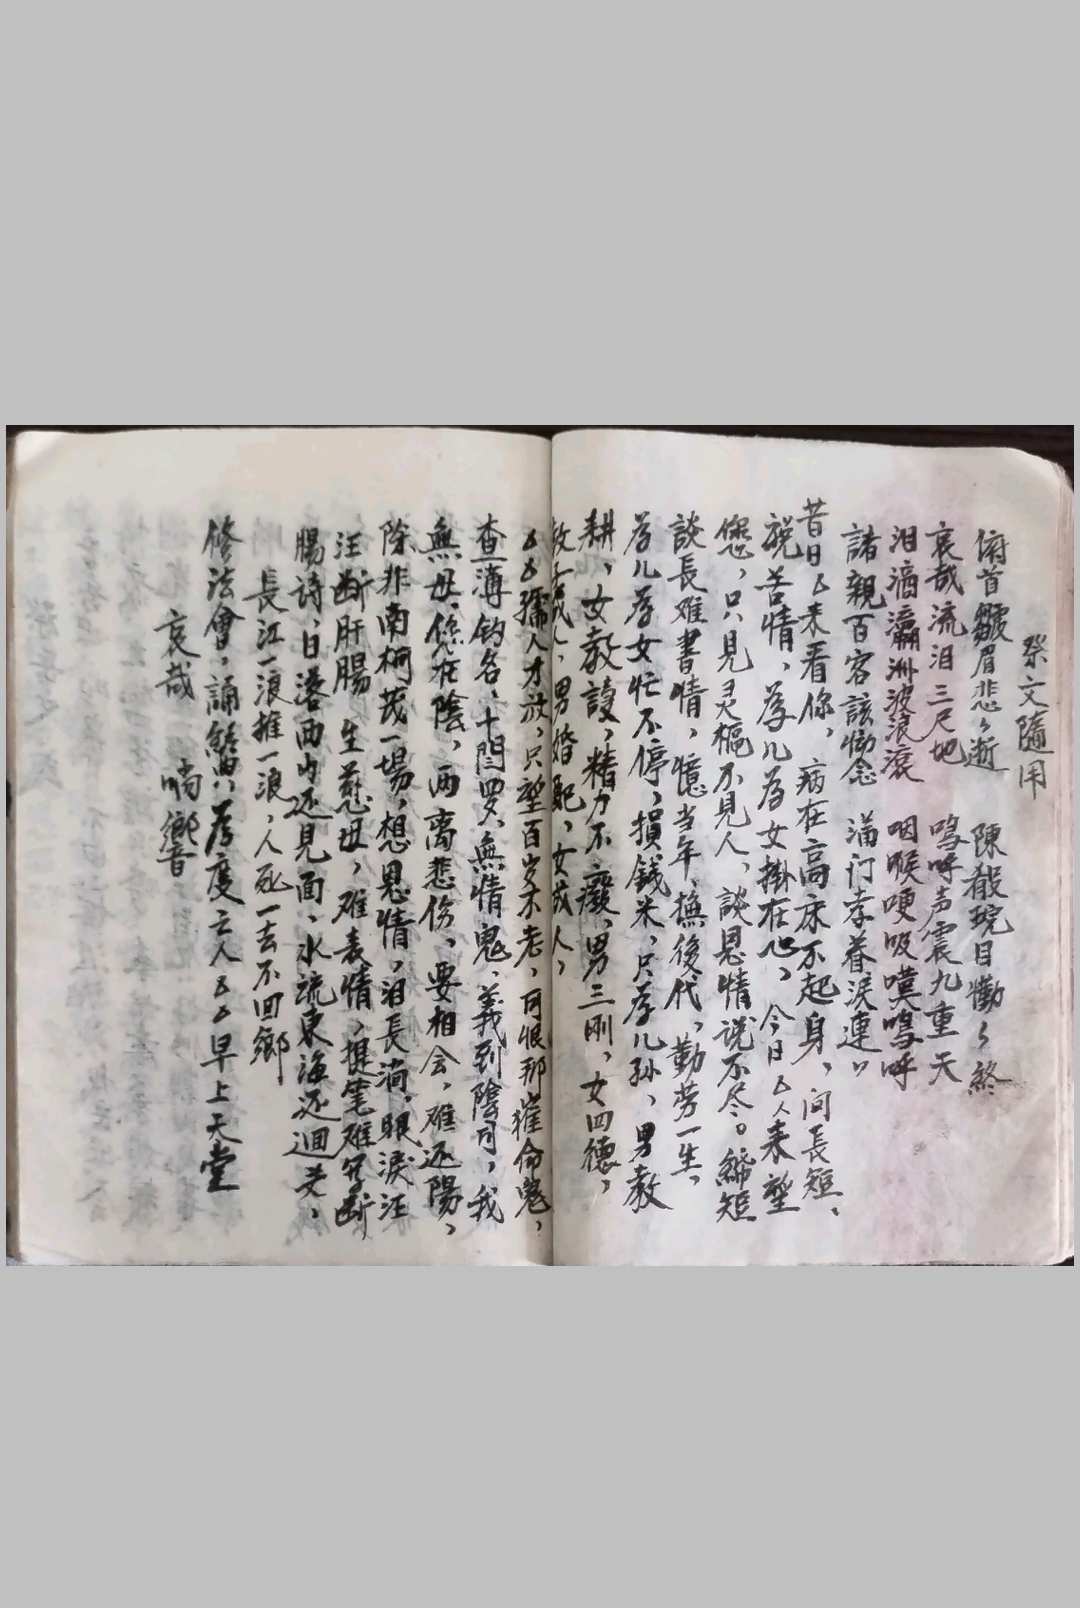 祭文隨用
俯首皺眉悲〻逝　陳殽琓目慟〻煞
哀哉流泪三尺地　嗚呼声震九重天
泪滴瀛洲波浪滾　咽喉哽吸嘆嗚呼
諸親百客該慟念　滿门孝眷淚連〻
昔日〻来看你，病在高床不起身，问長短、
說苦情，為儿為女掛在心，今日〻人来望
您，只見灵柩不見人，談恩情说不尽。
談長难書情，憶当年，撫後代，勤劳一生、
為儿為女忙不停，損錢米，只為儿孙，男教
耕，女教，精力不廢，男三刚，女四德，
教子成人，男婚配，女成人，
〻〻孺人才放，只望百岁不老，可恨那催命鬼，
查簿钩名，十閆罗，無情鬼，義到陰司，我
無母，您在陰，两离悲伤，要相会，难还陽，
除非南柯茂一場，想恩情，泪長淌，眼淚汪
汪断肝腸　生慈母，难表情，提笔难写断
腸詩，日落西山还見面，水流東海还迴关，
長江一浪推一浪，人死一去不回鄉
修法會，誦經〻为度亡人〻〻早上天堂
哀哉　嗚嚮